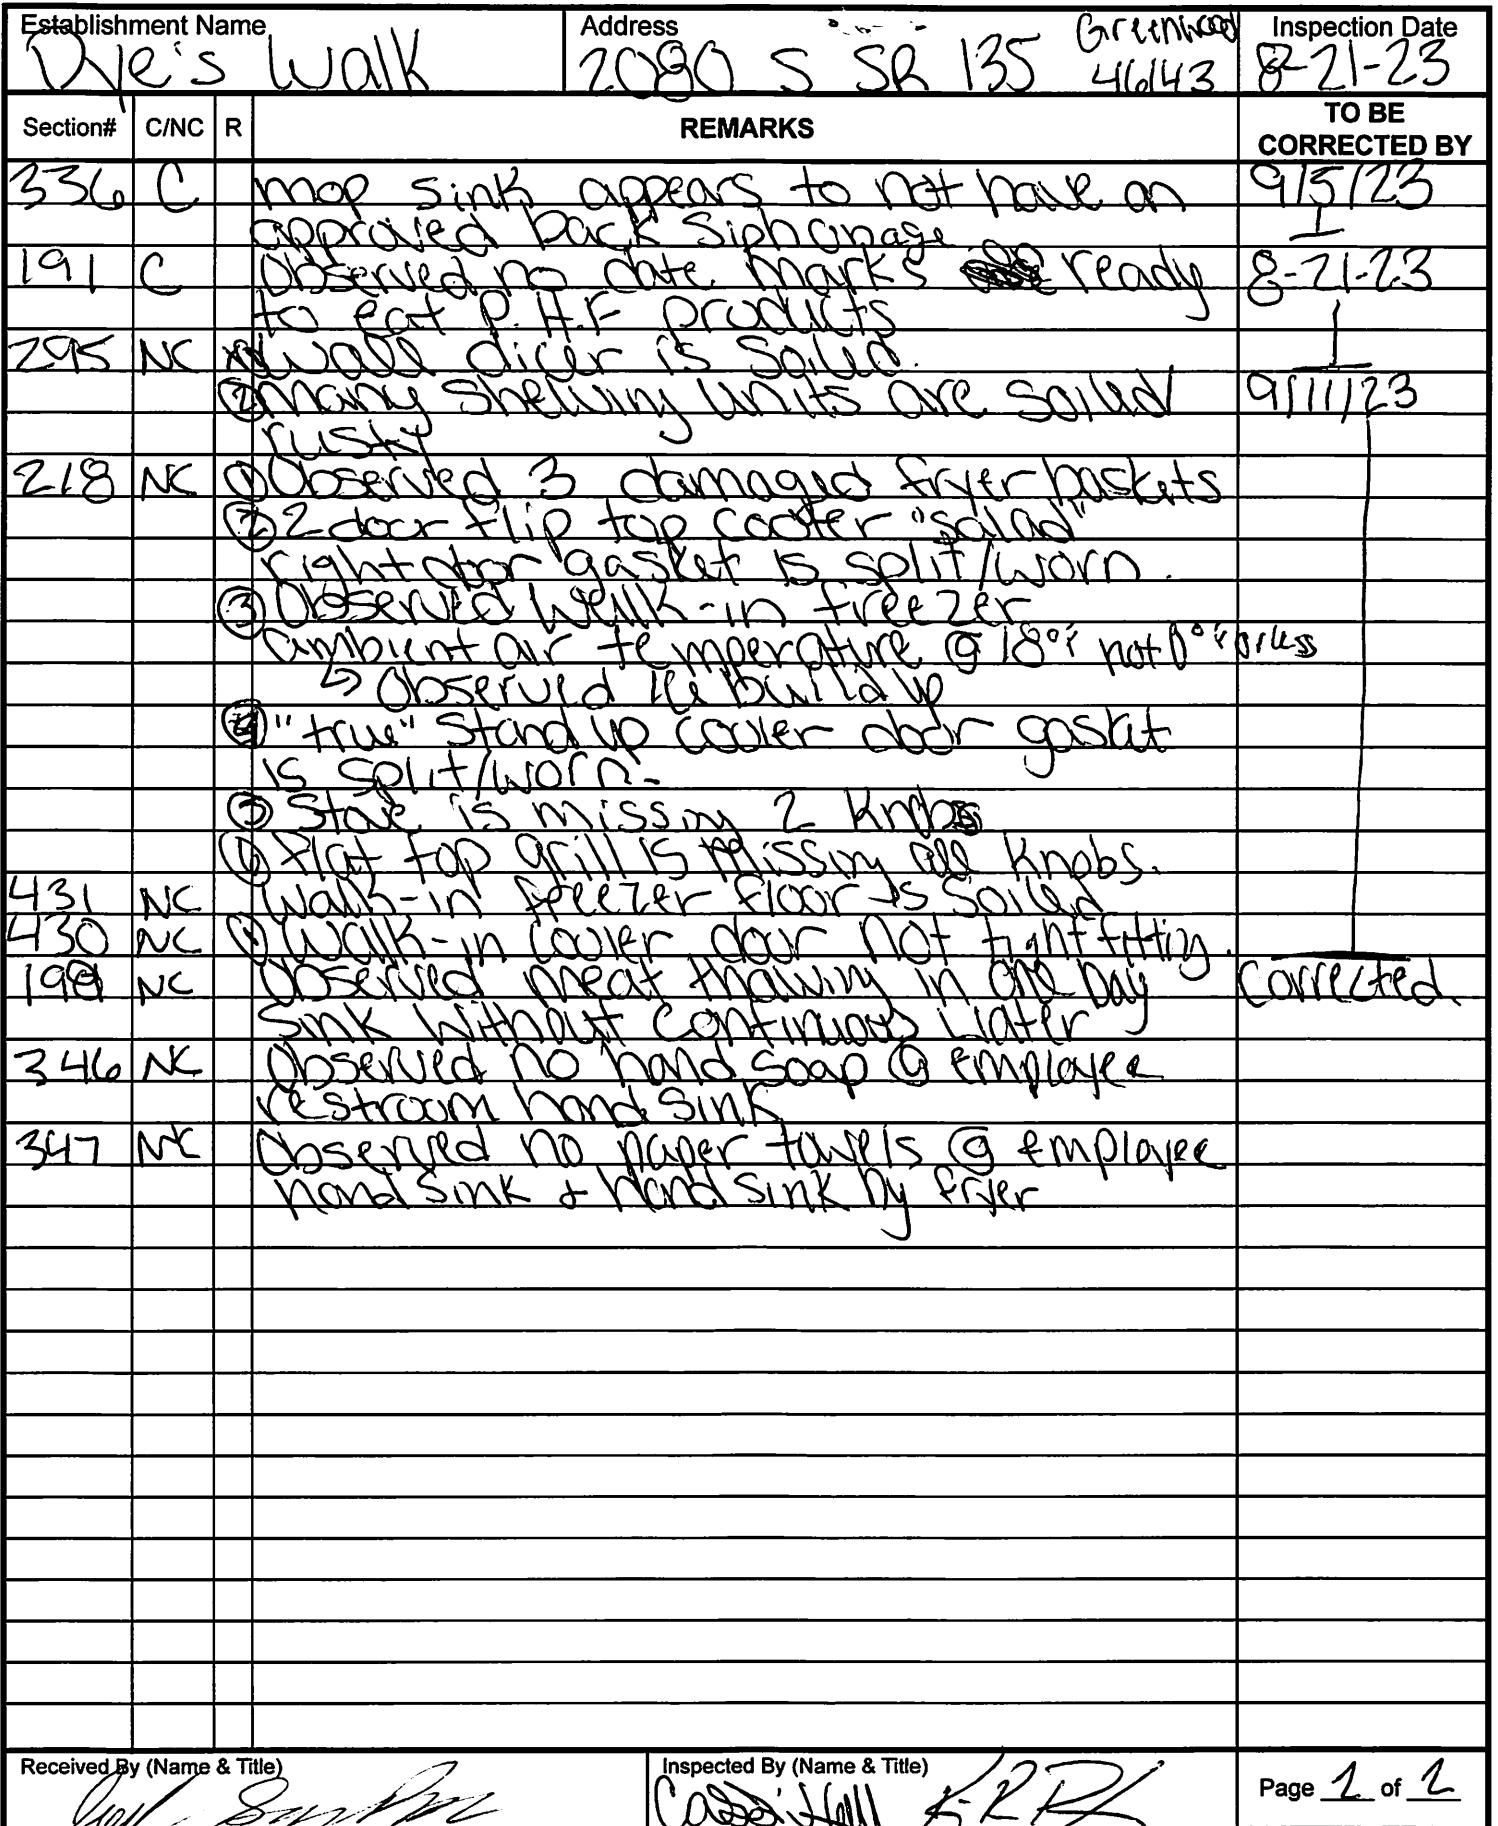 Establishment Name Address Greenwood Inspection Date
Dye's Walk 2080 S SR 135 46143 8-21-23
Section# C/NC R REMARKS TO BE
CORRECTED BY
336 C mop sink appears to not have an 9/5/23
approved back Siphonage
191 C Observed no date marks ready 8-21-23
to eat P.H.F products
295 NC ① Wall dicer is Soiled.
② Many Shelving units are soiled/ 9/11/23
rusty
218 NC ① Observed 3 damaged fryer baskets
② 2-door flip top cooler "Salad"
right door gasket is split/worn.
③ Observed Walk-in freezer
ambient air temperature @ 18°F not 0°F or less
↳ Observed ice build up
④ "true" Stand up cooler door gasket
is split/worn.
⑤ Stove is missing 2 Knobs
⑥ Flat top grill is Missing all Knobs.
431 NC Walk-in freezer floor is Soiled
430 NC ① Walk-in cooler door not tight fitting.
NC Observed meat thawing in one Bay Corrected.
Sink Without Continuous Water
346 NC Observed no hand soap @ employee
restroom hand Sink
347 NC Observed no paper towels @ employee
hand Sink & hand Sink by fryer
Received By (Name & Title) Inspected By (Name & Title)
Page 1 of 1